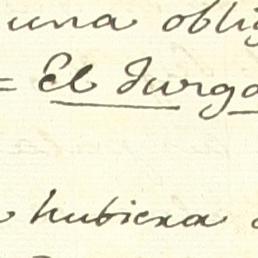 una oblig
= El Jurga
hubiera